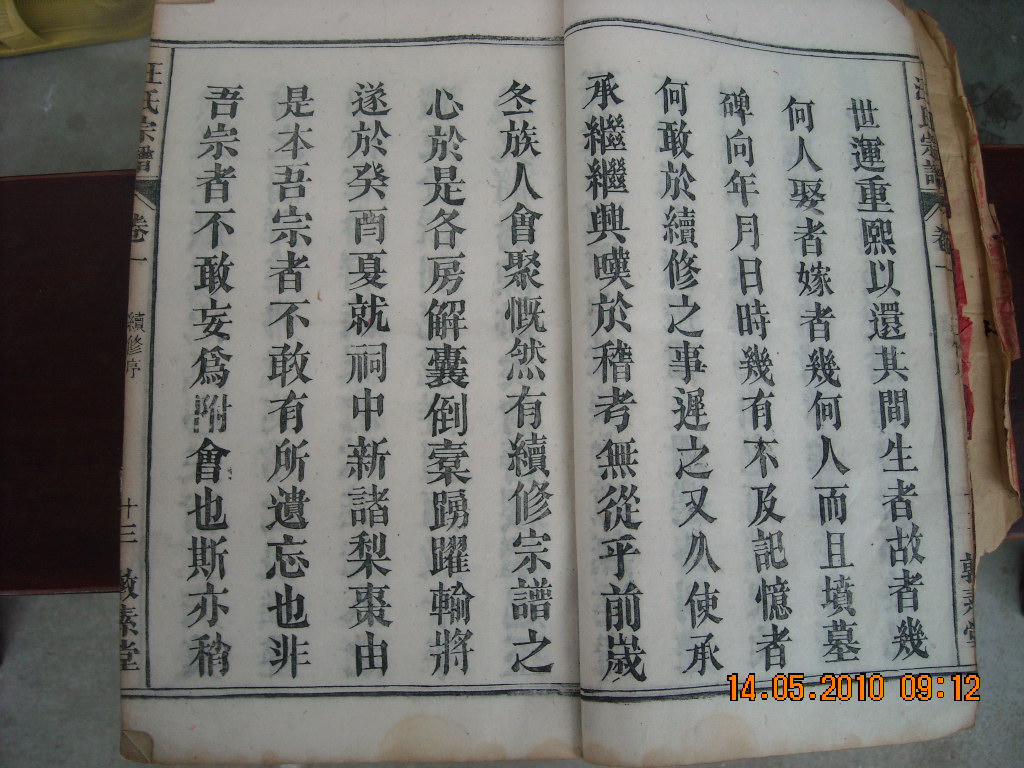 世運重熙以還其間生者故者幾
何人娶者嫁者幾何人而且墳墓
碑向年月日時幾有不及記憶者
何敢於續修之事遲之又久使承
承繼繼興嘆於稽考無從乎前歲
冬族人會聚慨然有續修宗譜之
心於是各房解囊倒橐踴躍輸將
遂於癸酉夏就祠中新諸梨棗由
是本吾宗者不敢有所遺忘也非
吾宗者不敢妄爲附會也斯亦稍
汪氏宗譜 卷一 續修序 十三 敦素堂
氏宗譜 卷一 素堂
14.05.2010 09:12